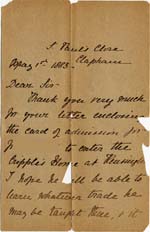 S. Paul's Close
Clapham
May 1st 1883.
Dear Sir-
Thank you very much
for your letter enclosing
the card of admission for
J to enter the
Cripples Home at Kensington
I hope he will be able to
learn whatever trade he
may be taught there, & it